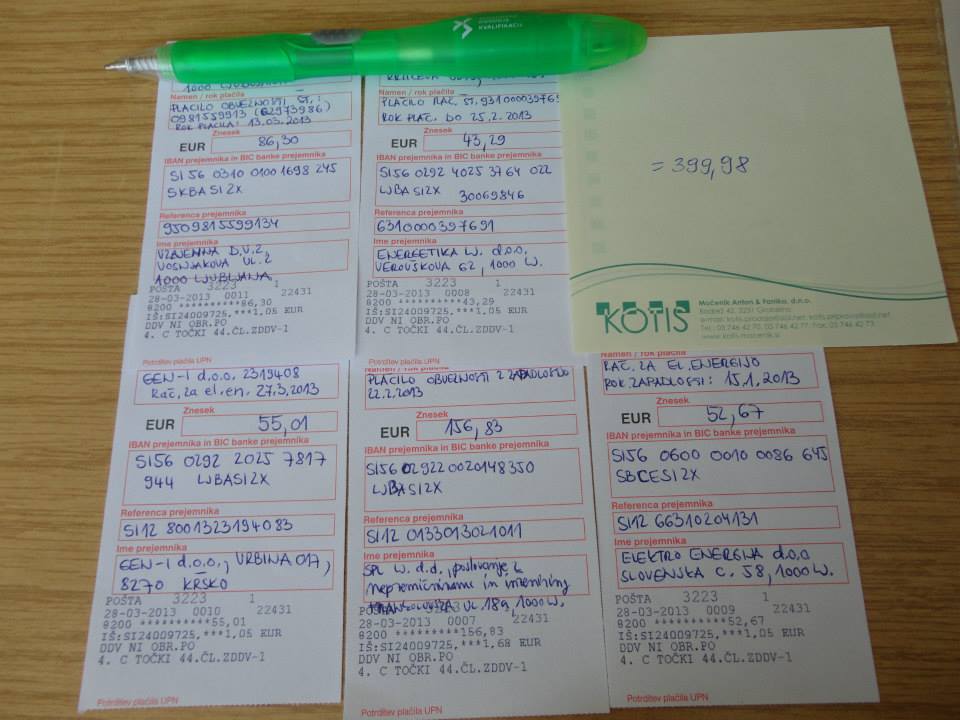 KVALIFIKACIJ
Namen / rok plačila
PLAČILO OBVEZNOSTI ŠT.:
0981559913 (62973986)
ROK PLAČILA: 13.03.2013
Znesek
EUR 86,30
IBAN prejemnika in BIC banke prejemnika
SI56 0310 0100 1698 245
SKBASI2X
Referenca prejemnika
9509815599134
Ime prejemnika
VZAJEMNA D.V.Z.
VOŠNJAKOVA UL. 2
1000 LJUBLJANA
POŠTA 3223 1
28-03-2013 0011 22431
8200 **********86,30
IŠ:SI24009725,***1,05 EUR
DDV NI OBR.PO
4. C TOČKI 44.ČL.ZDDV-1
Potrditev plačila UPN
Namen / rok plačila
PLAČILO RAČ. ŠT. 93100003976
ROK PLAČ. DO 25.2.2013
Znesek
EUR 43,29
IBAN prejemnika in BIC banke prejemnika
SI56 0292 4025 3764 022
LJBASI2X 30069846
Referenca prejemnika
6310000397691
Ime prejemnika
ENERGETIKA LJ. d.o.o.
VEROVŠKOVA 62, 1000 LJ.
POŠTA 3223 1
28-03-2013 0008 22431
8200 **********43,29
IŠ:SI24009725,***1,05 EUR
DDV NI OBR.PO
4. C TOČKI 44.ČL.ZDDV-1
Potrditev plačila UPN
= 399,98
KOTIS
Močenik Anton & Fanika, d.n.o.
GEN-I d.o.o. 2319408
Rač. za el. en. 27.3.2013
Znesek
EUR 55,01
IBAN prejemnika in BIC banke prejemnika
SI56 0292 2025 7817
944 LJBASI2X
Referenca prejemnika
SI12 8001323194083
Ime prejemnika
GEN-I d.o.o., VRBINA 017,
8270 KRŠKO
POŠTA 3223 1
28-03-2013 0010 22431
8200 **********55,01
IŠ:SI24009725,***1,05 EUR
DDV NI OBR.PO
4. C TOČKI 44.ČL.ZDDV-1
Potrditev plačila UPN
PLAČILO OBVEZNOSTI Z ZAPADLOSTJO
22.2.2013
Znesek
EUR 156,83
IBAN prejemnika in BIC banke prejemnika
SI56 02922 0020148350
LJBASI2X
Referenca prejemnika
SI12 0133013021011
Ime prejemnika
SPL LJ. d.d., poslovanje z
nepremičninami in inženiring
UL. 18a, 1000 LJ.
3223 1
28-03-2013 0007 22431
8200 **********156,83
IŠ:SI24009725,***1,68 EUR
DDV NI OBR.PO
4. C TOČKI 44.ČL.ZDDV-1
Potrditev plačila UPN
Namen / rok plačila
RAČ. ZA EL. ENERGIJO
ROK ZAPADLOSTI: 15.1.2013
Znesek
EUR 52,67
IBAN prejemnika in BIC banke prejemnika
SI56 0600 0010 0086 645
SBCESI2X
Referenca prejemnika
SI12 66310204131
Ime prejemnika
ELEKTRO ENERGIJA d.o.o
SLOVENSKA C. 58, 1000 LJ.
POŠTA 3223 1
28-03-2013 0009 22431
8200 **********52,67
IŠ:SI24009725,***1,05 EUR
DDV NI OBR.PO
4. C TOČKI 44.ČL.ZDDV-1
Potrditev plačila UPN